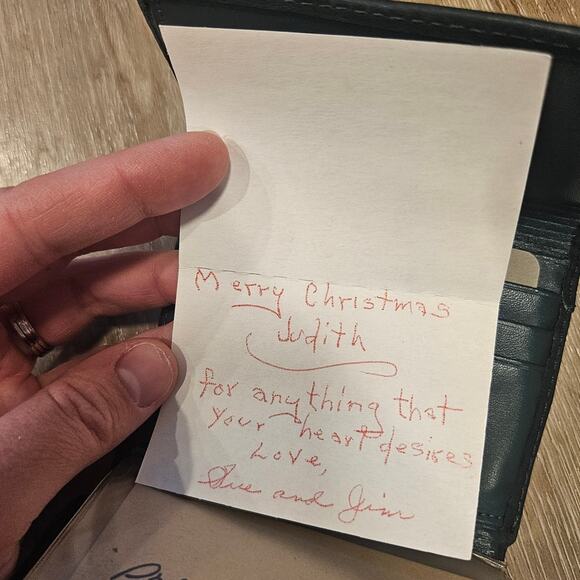 Merry Christmas
Judith
for anything that
your heart desires
Love,
Sue and Jim